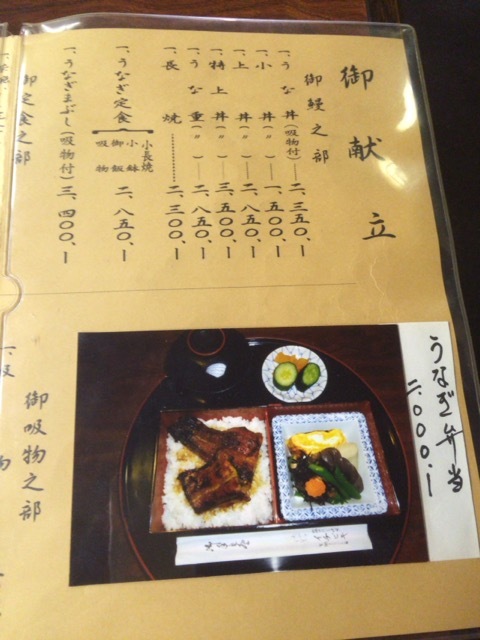 御献立
御鰻之部
一、うな丼(吸物付)—二、三五〇、ー
一、小丼(〃)—一、五〇〇、ー
一、上丼(〃)—二、八五〇、ー
一、特上丼(〃)—三、五〇〇、ー
一、うな重(〃)—二、八五〇、ー
一、長焼…………二、三〇〇、ー
一、うなぎ定食
小長焼
小鉢
御飯
吸物
二、八五〇、ー
一、うなぎまぶし(吸物付)三、四〇〇、ー
御定食之部
うなぎ弁当
二、000、ー
御吸物之部